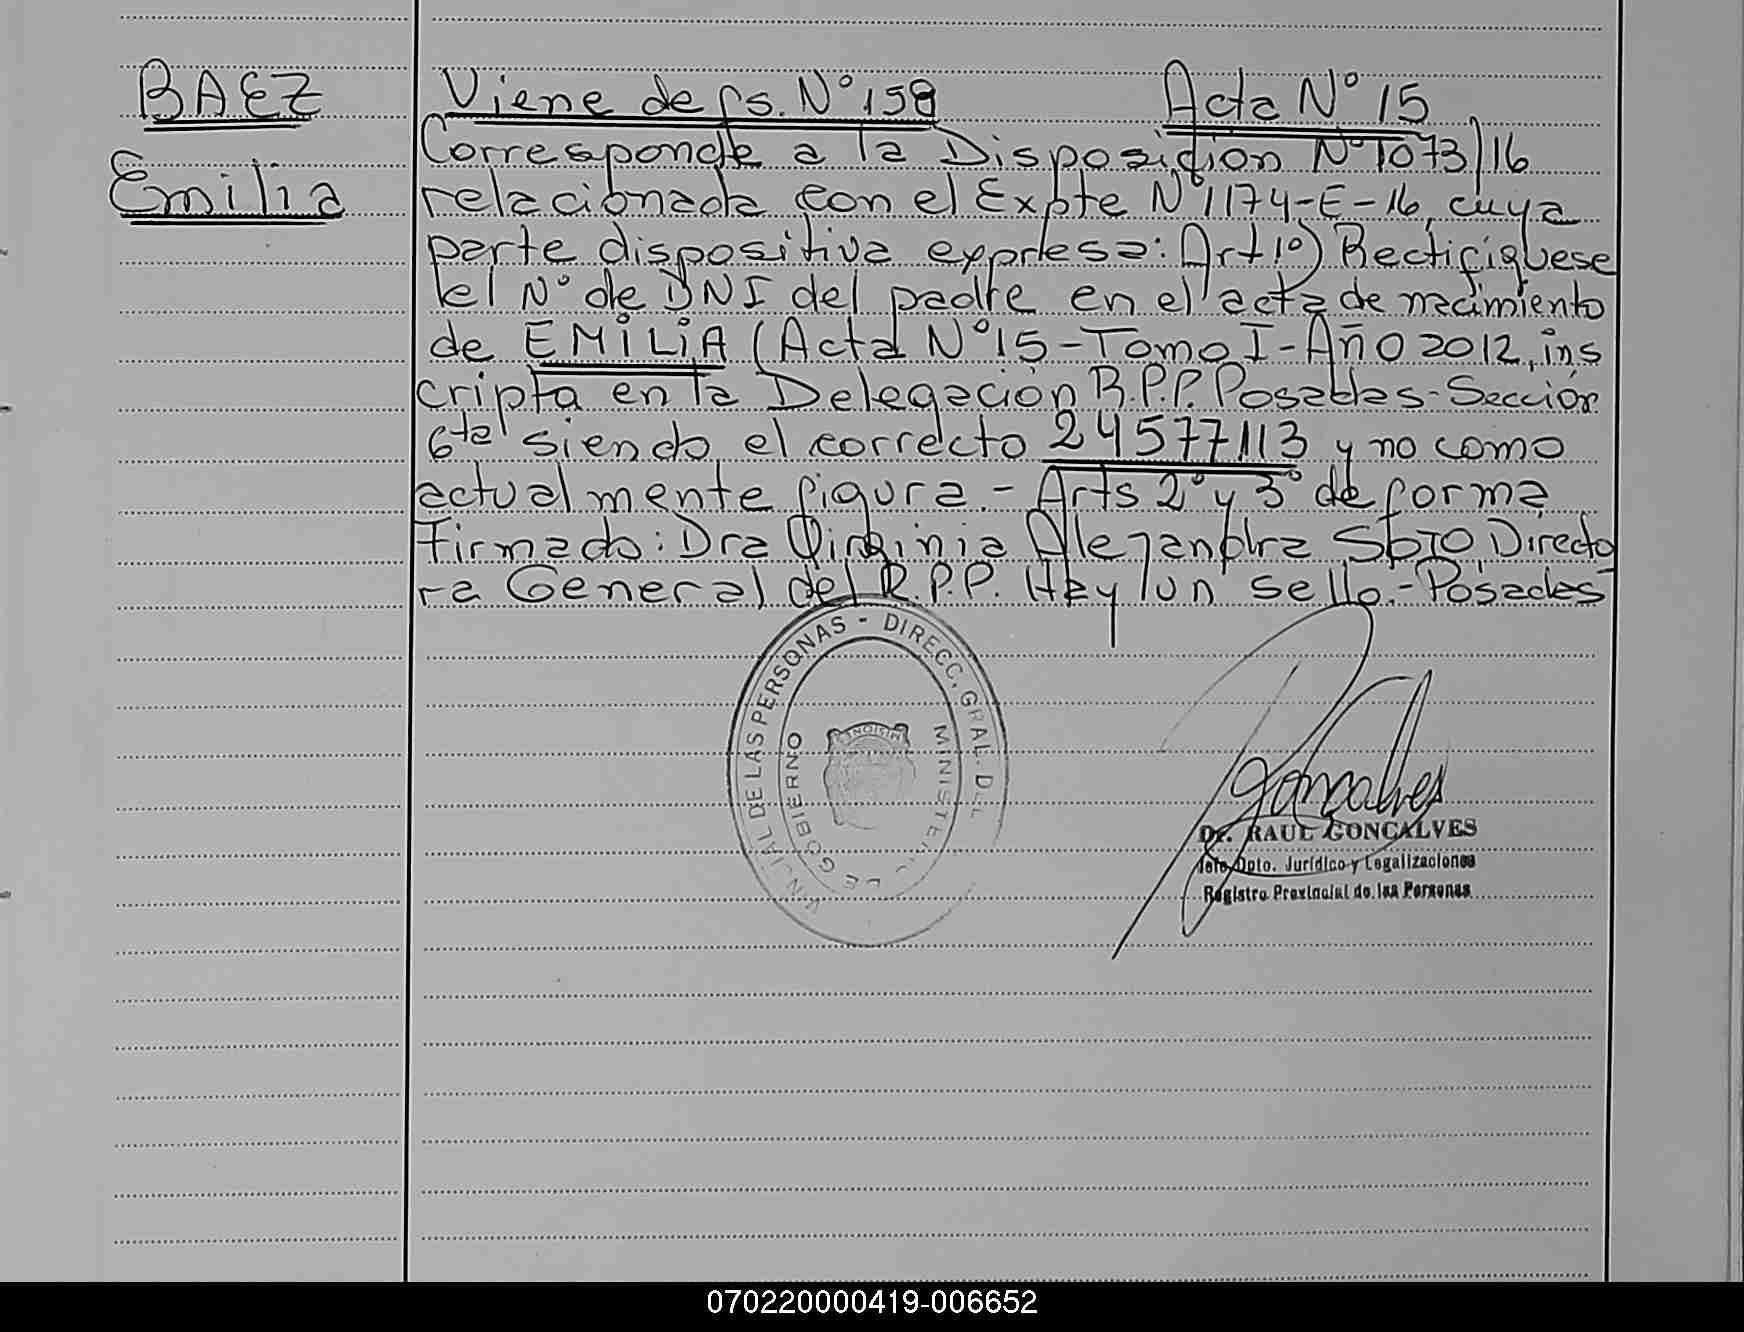 BAEZ
Emilia
Viene de fs. Nº 158 Acta Nº 15
Corresponde a la Disposición Nº 1073/16
relacionada con el Expte Nº 1174-E-16, cuya
parte dispositiva expresa: Art 1º) Rectifíquese
el Nº de DNI del padre en el acta de nacimiento
de EMiLiA (Acta Nº 15 - Tomo I - Año 2012, ins
cripta en la Delegación R.P.P. Posadas - Sección
6ta siendo el correcto 24577113 y no como
actualmente figura. - Arts 2º y 3º de forma
Firmado: Dra Virginia Alejandra Sbto Directo
ra General del R.P.P. Hay un sello. - Posadas
VINCIAL DE LAS PERSONAS - DIRECC. GRAL. DEL
MINISTERIO DE GOBIERNO
MISION
Goncalves
Dr. RAUL GONCALVES
Jefe Dpto. Jurídico y Legalizaciones
Registro Provincial de las Personas
070220000419-006652